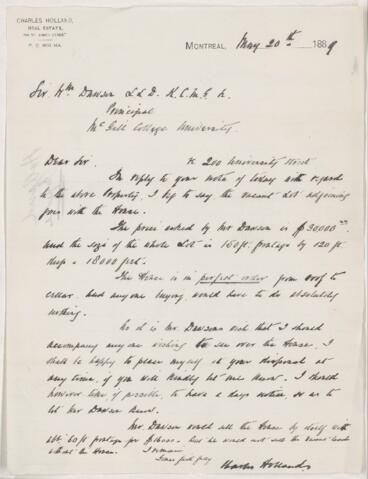 CHARLES HOLLAND,
REAL ESTATE,
MONTREAL, May 20th 1889
Sir Wm Dawson L.L.D. K.C.M.G.
Principal
McGill College University.
Dear Sir. re 200 University Street
In reply to your note of today with regard
to the above Property, I beg to say the vacant Lot adjoining
goes with the House.
The price asked by Mr Dawson is $30000
and the size of the whole Lot is 150 ft. frontage by 120 ft
deep = 18000 feet.
The House is in perfect order from roof to
cellar. and any one buying would have to do absolutely
nothing.
As it is Mr. Dawsons wish that I should
accompany any one wishing to see over the House, I
shall be happy to place myself at your disposal at
any time, if you will kindly let me know. I should
however like, if possible, to have a days notice, so as to
let Mr Dawson know.
Mr. Dawson would sell the House by itself with
abt 60 ft frontage for but he would not sell the vacant land
without the House.
I remain
Yours faithfully
Charles Holland